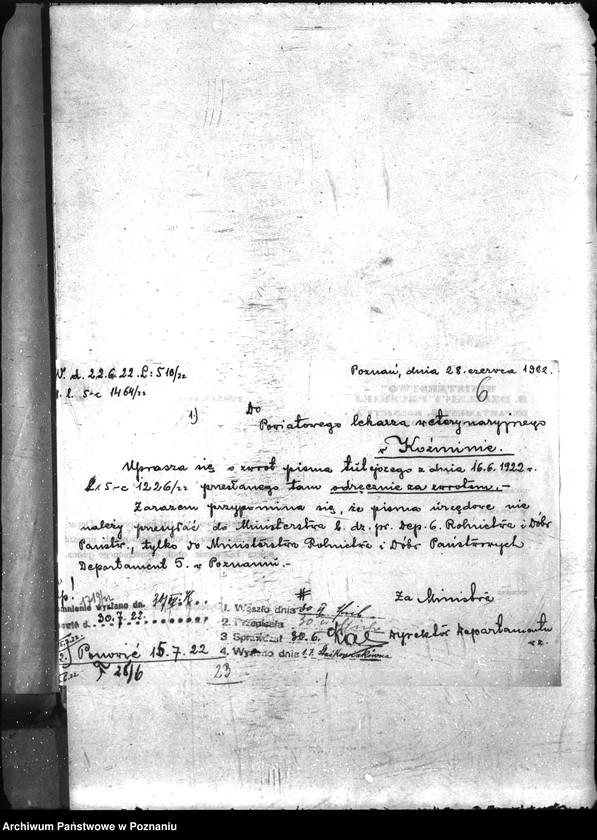 d. 22.6.22. L: 510/22
l. 5-c 1464/22
Poznań, dnia 28. czerwca 1922.
6
1) Do
Powiatowego lekarza weterynaryjnego
w Koźminie.
Uprasza się o zwrot pisma tutejszego z dnia 16.6.1922 r.
L: 5-c 1226/22 przesłanego tam odręcznie za zwrotem.-
Zarazem przypomina się, że pisma urzędowe nie
należy przesyłać do Ministerstwa b. dz. pr. Dep. G. Rolnictwa i Dóbr
Państw., tylko do Ministerstwa Rolnictwa i Dóbr Państwowych
Departament 5. w Poznaniu.-
Za Ministra
Dyrektor Departamentu
wysłano dn.
d. 30.7.22.
Ponowić 15.7.22
26/6
1. Weszło dnia 30
2. Przepisała 30
3. Sprawdził 30.6.
4. Wysłano dnia 1.7.
23
Archiwum Państwowe w Poznaniu